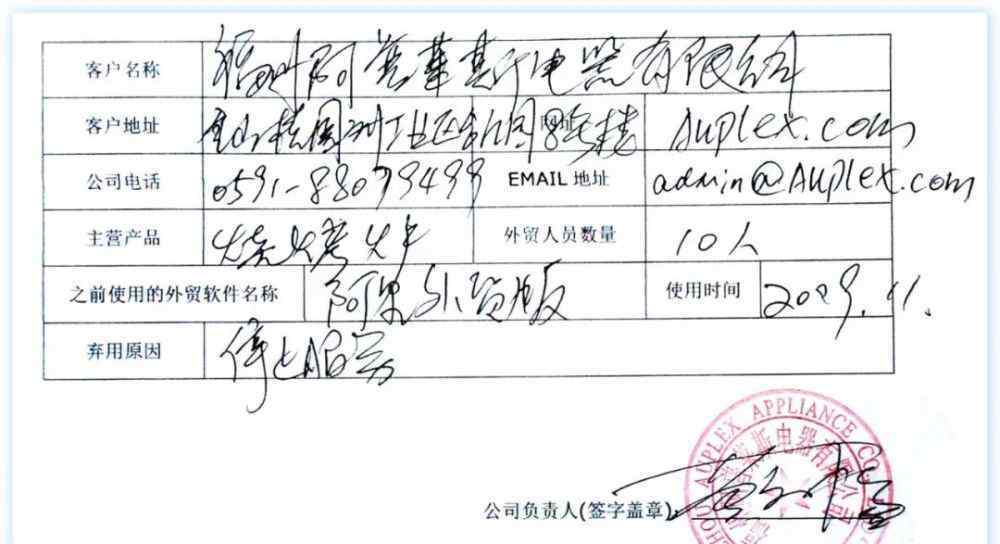 客户名称 福州阿普莱斯电器有限公司
客户地址 金山桔园洲工业园 网址 8号楼 Auplex.com
公司电话 0591-88079499 EMAIL 地址 admin@Auplex.com
主营产品 烧烤炉 外贸人员数量 10人
之前使用的外贸软件名称 阿里外贸版 使用时间 2009.11.
弃用原因 停止服务
AUPLEX APPLIANCE CO.
斯电器有限公司
公司负责人(签字盖章)